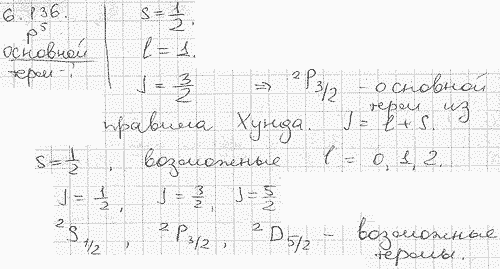 6.136.
p⁵
основной
терм - ?
s = 1/2.
l = 1.
J = 3/2 ⇒ ²P₃/₂ - основной
терм из
правила Хунда. J = l + s.
s = 1/2, возможные l = 0, 1, 2.
J = 1/2, J = 3/2, J = 5/2
²S₁/₂, ²P₃/₂, ²D₅/₂ - возможные
термы.